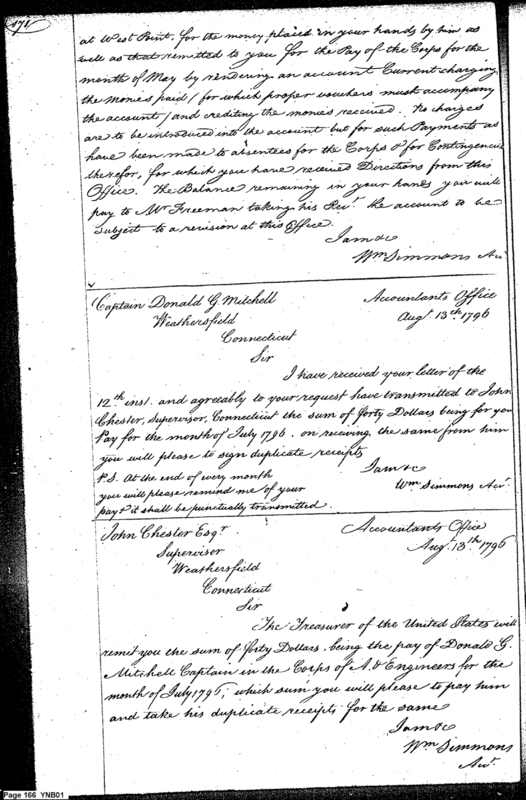 172
at West Point. for the money placed in your hands by him as
well as that remitted to you for the Pay of the Corps for the
month of May by rendering an account Current charging
the monies paid / for which proper vouchers must accompany
the account / and crediting the monies received. No charges
are to be introduced into the account but for such Payments as
have been made to absentees for the Corps & for Contingencies
therefor, for which you have received Directions from this
Office. The Balance remaining in your hands you will
pay to Mr Freeman taking his Rect. the account to be
Subject to a revision at this Office.
I am &c
Wm Simmons Act.
Captain Donald G. Mitchell
Accountants Office
Weathersfield
Augt. 13th. 1796
Connecticut
Sir
I have received your letter of the
12th inst. and agreeably to your request have transmitted to John
Chester, Supervisor, Connecticut the sum of forty Dollars being for you
Pay for the month of July 1796. on receiving the same from him
you will please to sign duplicate receipts
I am &c
P.S. At the end of every month
Wm Simmons Act.
you will please remind me of your
pay & it shall be punctually transmitted.
John Chester Esqr.
Accountants Office
Supervisor
Augt. 13th. 1796
Weathersfield
Connecticut
Sir
The Treasurer of the United States will
remit you the sum of forty Dollars, being the pay of Donald G.
Mitchell Captain in the Corps of A. & Engineers for the
month of July 1796, which sum you will please to pay him
and take his duplicate receipts for the same
I am &c
Wm Simmons
Act.
Page 166 YNB01